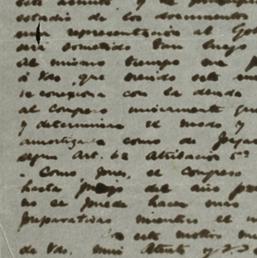 este asunto y de
estudio de los documentos
una representación al Go
será sometido tan luego
al mismo tiempo me
á Vds. que siendo este
se relaciona con la deuda
al Congreso unicamente
y determina el modo y
amortizarla como de
segun Art. 62 Atribución 5ª
. Como, pues, el Congreso
hasta Junio del año
no se puede hacer mas
preparativas mientras el
este motivo
de Vds. mui Atento y S. S.